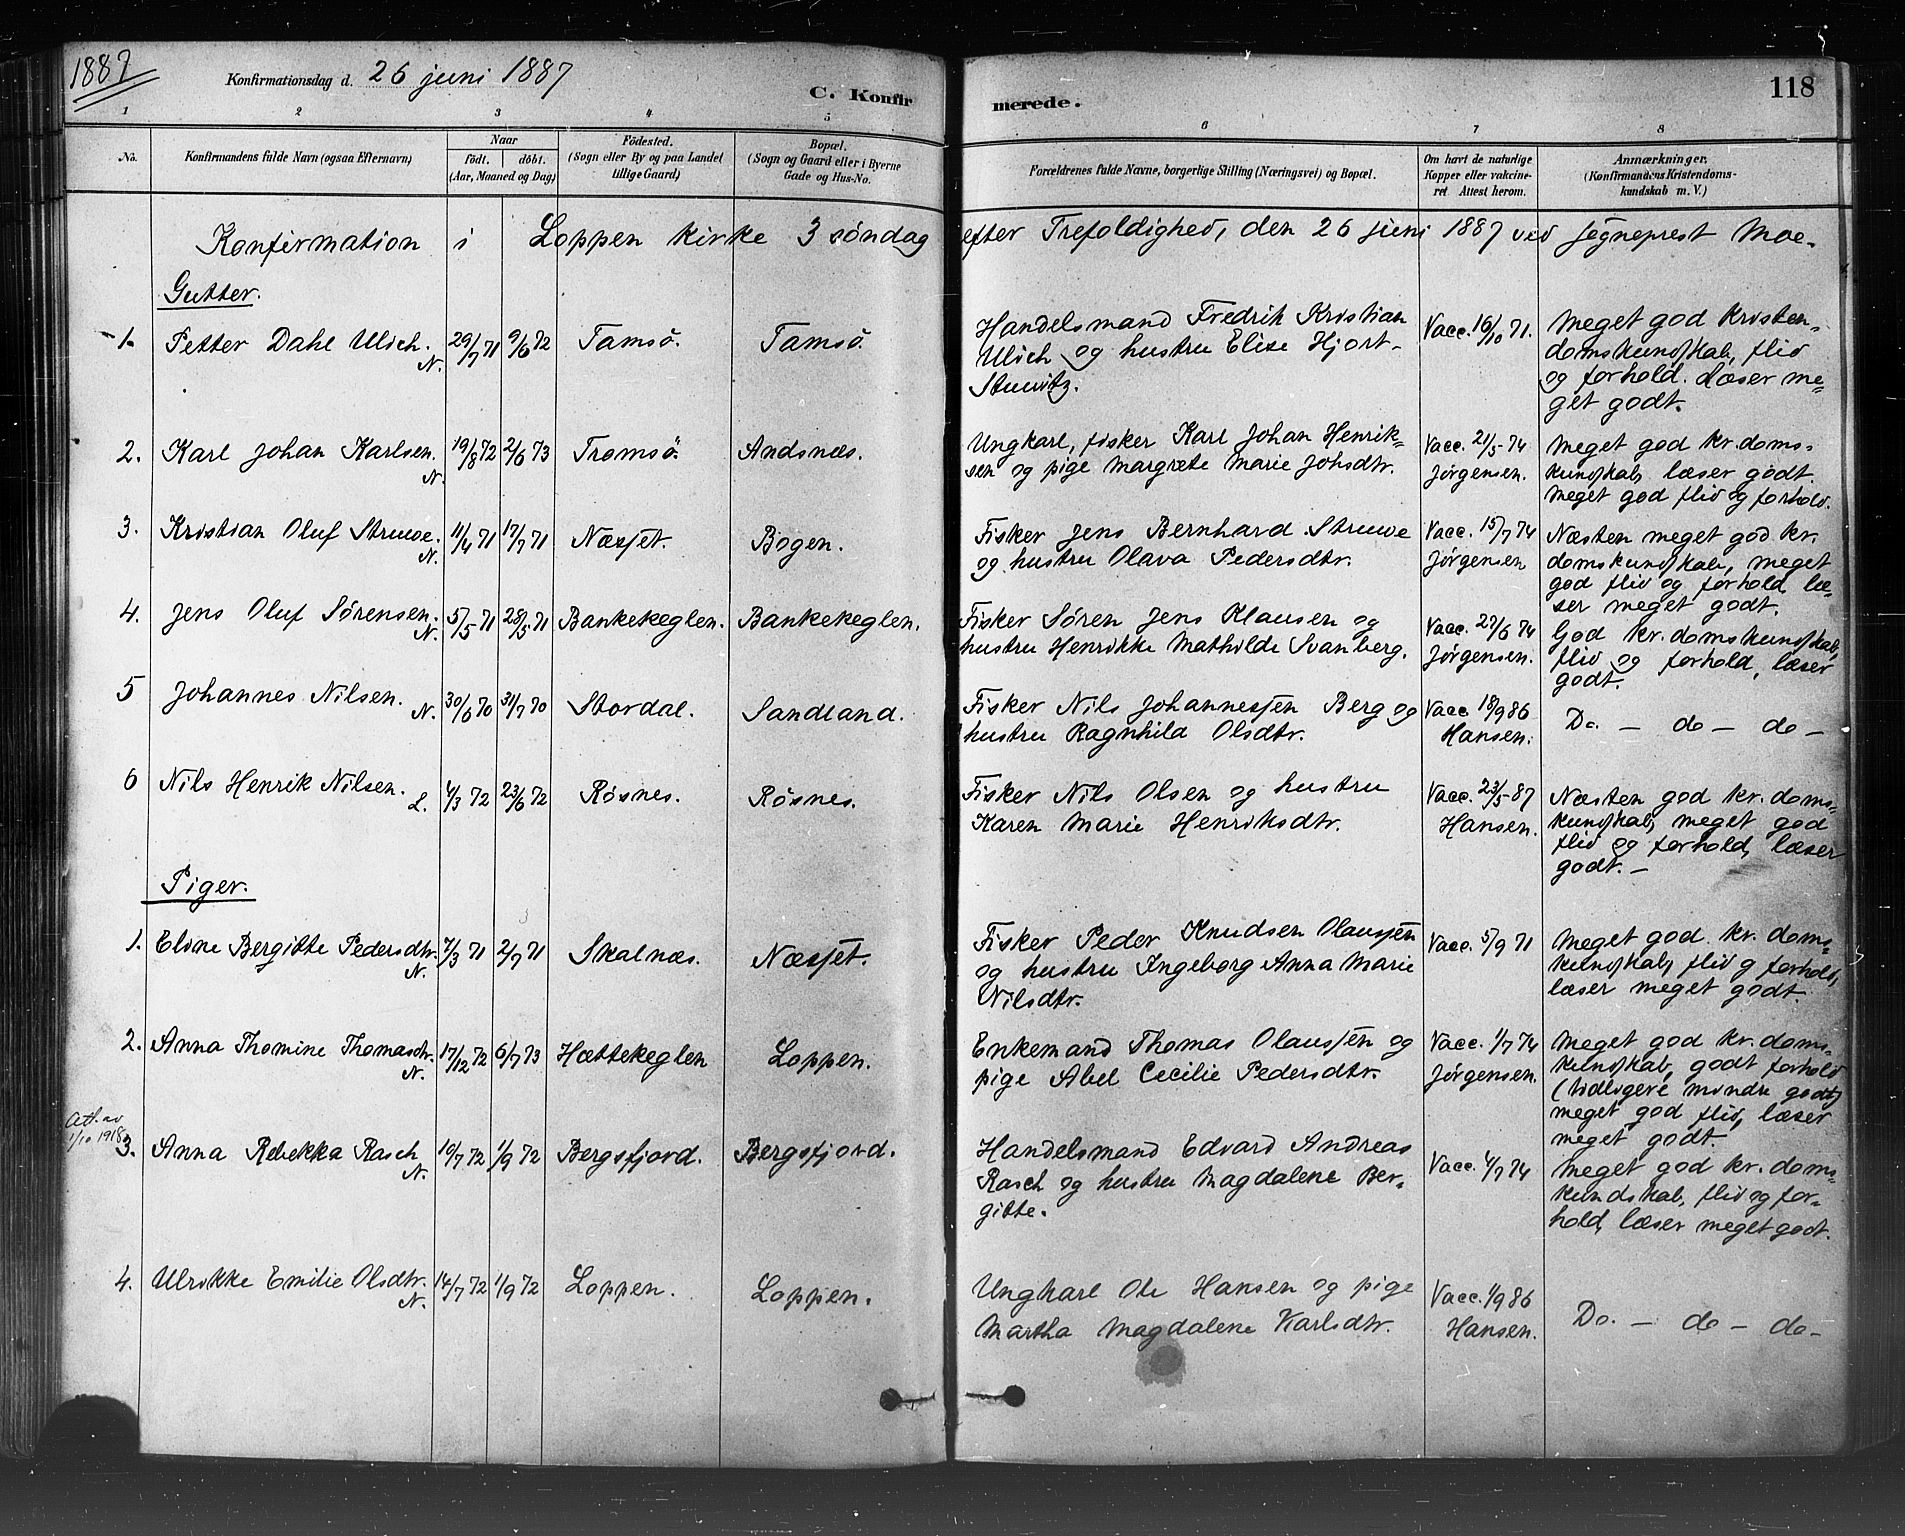 1887
Konfirmationsdag d. 26 juni 1887
C. Konfirmerede.
118
1 2 3 4 5 6 7 8
No.
Konfirmandens fulde Navn (ogsaa Efternavn)
Naar
født. døbt.
(Aar, Maaned og Dag)
Födested.
(Sogn eller By og paa Landet
tillige Gaard)
Bopæl.
(Sogn og Gaard eller i Byerne
Gade og Hus-No.
Forældrenes fulde Navne, borgerlige Stilling (Næringsvei) og Bopæl.
Om havt de naturlige
Kopper eller vakcine-
ret Attest herom.
Anmærkninger.
(Konfirmandens Kristendoms-
kundskab m. V.)
Konfirmation i Loppen kirke 3 søndag efter Trefoldighed, den 26 juni 1887 ved sogneprest Moe.
Gutter.
1. Petter Dahl Ulich. N. 29/7 71 9/6 72 Tamsö. Tamsö.
Handelsmand Fredrik Kristian
Ulich og hustru Elise Hjort-
Stuwitz.
Vacc. 16/10 71.
Meget god kristen-
domskundskab, flid
og forhold. Læser me-
get godt.
2. Karl Johan Karlsen. N. 19/8 72 2/6 73 Tromsö. Andsnæs.
Ungkarl, fisker Karl Johan Henrik-
sen og pige Margrete Marie Johsdtr.
Vacc. 21/5-74
Jørgensen.
Meget god kr.doms-
kundskab, læser godt.
meget god flid og forhold.
3. Kristian Oluf Struwe. N. 11/4 71 17/7 71 Næsset. Bogen.
Fisker Jens Bernhard Struwe
og hustru Olava Pedersdtr.
Vacc. 15/7 74
Jørgensen
Næsten meget god kr.
domskundskab, meget
god flid og forhold, læ-
ser meget godt.
4. Jens Oluf Sørensen. N. 5/5 71 28/5 71 Bankekeglen. Bankekeglen.
Fisker Søren Jens Klausen og
hustru Henrikke Mathilde Svanberg.
Vacc. 27/6 74
Jørgensen.
God kr.domskundskab,
flid og forhold, læser
godt.
5 Johannes Nilsen. N. 30/6 70 31/7 70 Stordal. Sandland.
Fisker Nils Johannessen Berg og
hustru Ragnhild Olsdtr.
Vacc 18/9 86
Hansen.
Do. — do — do —
6 Nils Henrik Nilsen. L. 4/3 72 23/6 72 Røsnes. Røsnes.
Fisker Nils Olsen og hustru
Karen Marie Henriksdtr.
Vacc. 23/5-87
Hansen.
Næsten god kr.doms-
kundskab, meget god
flid og forhold, læser
godt. —
Piger.
1. Eline Bergitte Pedersdtr. N. 7/3 71 2/7 71 Skalnæs. Næsset.
Fisker Peder Knudsen Olaussen
og hustru Ingeborg Anna Marie
Nilsdtr.
Vacc. 5/9 71
Meget god kr.doms-
kundskab, flid og forhold,
læser meget godt.
2. Anna Thomine Thomasdtr. N. 17/12 72 6/7 73 Hættekeglen Loppen.
Enkemand Thomas Olaussen og
pige Abel Cecilie Pedersdtr.
Vacc. 1/7 74
Jørgensen.
Meget god kr.doms-
kundskab, godt forhold
(tidligere mindre godt)
meget god flid, læser
meget godt.
Att. av
1/10 1918
3. Anna Rebekka Rasch N. 19/7 72 1/9 72 Bergsfjord. Bergsfjord.
Handelsmand Edvard Andreas
Rasch og hustru Magdalene Ber-
gitte.
Vacc. 4/7 74
Meget god kr.doms-
kundskab, flid og for-
hold, læser meget godt.
4. Ulrikke Emilie Olsdtr. N. 14/7 72 1/9 72 Loppen. Loppen.
Ungkarl Ole Hansen og pige
Martha Magdalene Karlsdtr.
Vacc. 1/9 86
Hansen.
Do. — do — do —